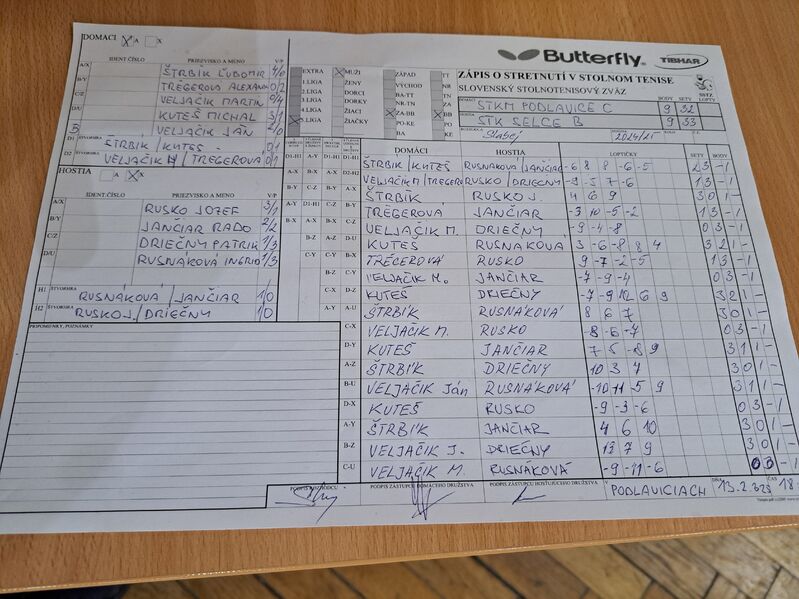 DOMACI X A X
Butterfly
TIBHAR
IDENT. ČÍSLO PRIEZVISKO A MENO V/P
A/X ŠTRBIK ĽUBOMIR 4/0
B/Y TREGEROVÁ ALEXANDRA 0/2
C/Z VELJAČIK MARTIN 0/4
D/U KUTEŠ MICHAL 3/1
VELJAČIK JÁN 2/0
D1 ŠTVORHRA ŠTRBIK / KUTEŠ 0/1
D2 ŠTVORHRA VELJAČIK M / TREGEROVÁ 0/1
EXTRA MUŽI ZÁPAD TT
1.LIGA ŽENY VÝCHOD NR
2.LIGA DORCI BA-TT
3.LIGA DORKY NR-TN
4.LIGA ŽIACI ZA-BB
5.LIGA ŽIAČKY PO-KE
ZÁPIS O STRETNUTÍ V STOLNOM TENISE
SLOVENSKÝ STOLNOTENISOVÝ ZVÄZ
BODY SETY LOPTY
DOMÁCI STKM PODLAVICE C 9 32
HOSTIA STK SELCE B 9 33
2024/25
HOSTIA A X X
IDENT. ČÍSLO PRIEZVISKO A MENO V/P
A/X RUSKO JOZEF 3/1
B/Y JANČIAR RADO 2/2
C/Z DRIEČNY PATRIK 1/3
D/U RUSNÁKOVÁ INGRID 1/3
H1 ŠTVORHRA RUSNÁKOVÁ / JANČIAR 1/0
H2 ŠTVORHRA RUSKO J. / DRIEČNY 1/0
PRIPOMIENKY, POZNÁMKY
DOMÁCI HOSTIA LOPTIČKY SETY BODY
D1-H1 ŠTRBIK / KUTEŠ RUSNÁKOVÁ / JANČIAR -6 8 8 -6 -5 2 3 - 1
D2-H2 VELJAČIK M / TREGEROVÁ RUSKO / DRIEČNY -9 -5 7 -6 1 3 - 1
A-X ŠTRBÍK RUSKO J. 4 6 9 3 0 1 -
B-Y TRÉGEROVÁ JANČIAR -3 10 -5 -2 1 3 - 1
VELJAČIK M. DRIEČNY -9 -4 -8 0 3 - 1
KUTEŠ RUSNAKOVA 3 -6 -8 8 4 3 2 1 -
TRÉGEROVÁ RUSKO 9 -7 -2 -5 1 3 - 1
VELJAČIK M. JANČIAR -7 -9 -4 0 3 - 1
KUTEŠ DRIEČNY -7 -9 12 6 9 3 2 1 -
ŠTRBÍK RUSNÁKOVÁ 8 6 7 3 0 1 -
C-X VELJAČIK M. RUSKO -8 -6 -7 0 3 - 1
D-Y KUTEŠ JANČIAR 7 5 -8 9 3 1 1 -
A-Z ŠTRBÍK DRIEČNY 10 3 7 3 0 1 -
B-U VELJAČIK Ján RUSNÁKOVÁ -10 11 5 9 3 1 1 -
D-X KUTEŠ RUSKO -9 -3 -6 0 3 - 1
A-Y ŠTRBÍK JANČIAR 4 6 10 3 0 1 -
B-Z VELJAČIK J. DRIEČNY 12 7 9 3 0 1 -
C-U VELJAČIK M. RUSNÁKOVÁ -9 -11 -6 0 3 - 1
PODPIS ROZHODCU PODPIS ZÁSTUPCU DOMÁCEHO DRUŽSTVA PODPIS ZÁSTUPCU HOSŤUJÚCEHO DRUŽSTVA V PODLAVICIACH DŇA 13.2.2025 18